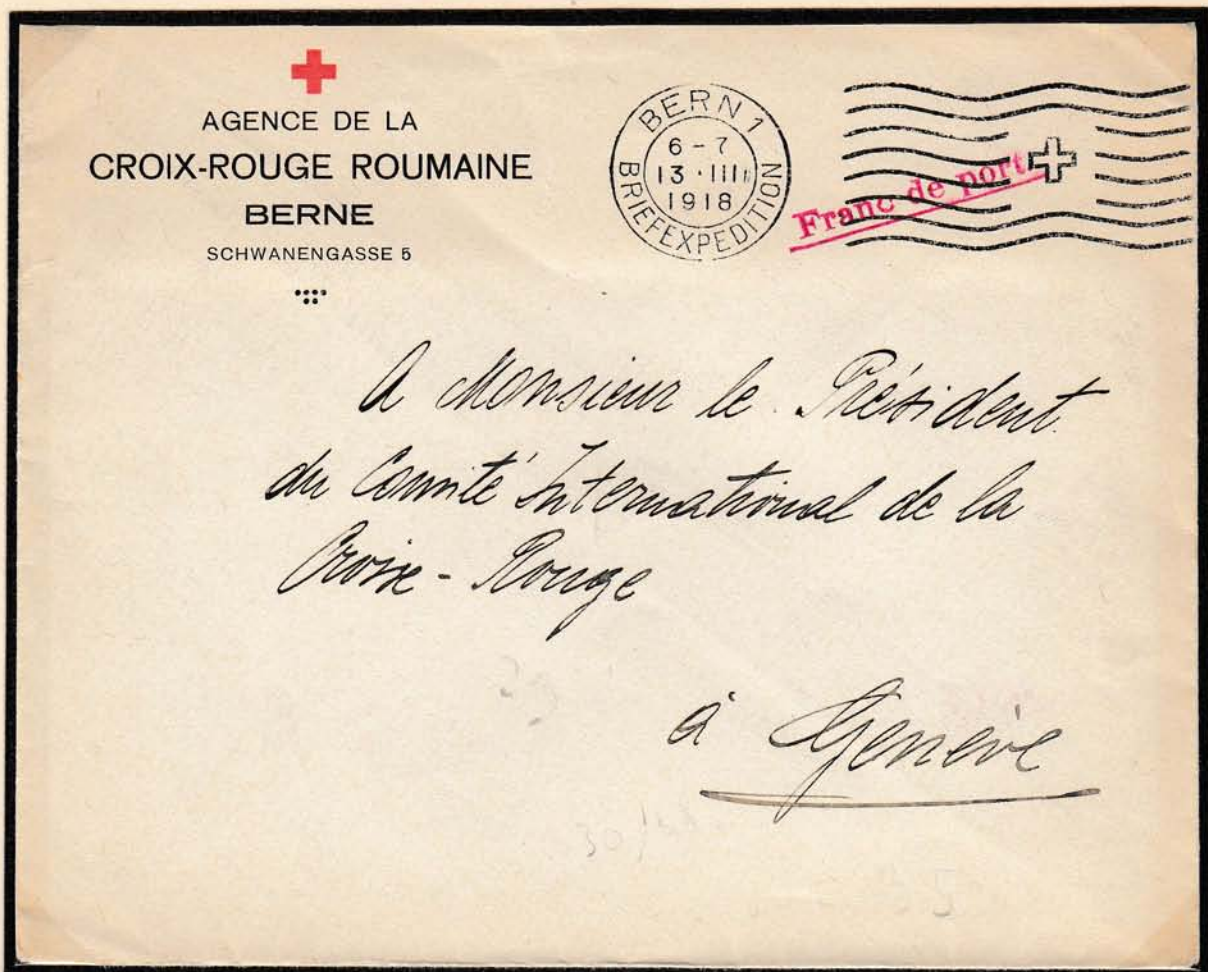 AGENCE DE LA
CROIX-ROUGE ROUMAINE
BERNE
SCHWANENGASSE 5
BERN 1
6-7
13·III
1918
BRIEFEXPEDITION
Franc de port
A Monsieur le Président
du Comité International de la
Croix-Rouge
à Genève